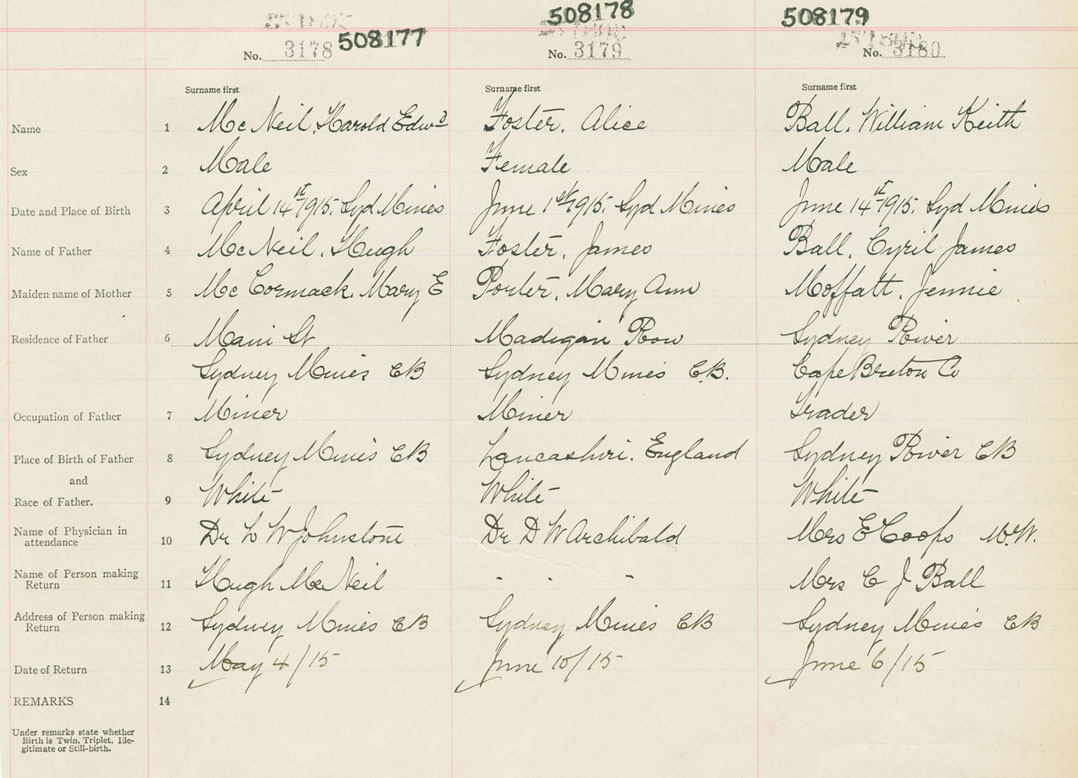 508177 508178 508179
No. 3178 No. 3179 No. 3180
Surname first Surname first Surname first
Name 1 McNeil, Harold Edwd Foster, Alice Ball, William Keith
Sex 2 Male Female Male
Date and Place of Birth 3 April 14st 1915. Syd Mines June 1st 1915. Syd Mines June 14st 1915. Syd Mines
Name of Father 4 McNeil, Hugh Foster, James Ball, Cyril James
Maiden name of Mother 5 McCormack, Mary E Porter, Mary Ann Moffatt, Jennie
Residence of Father 6 Main St Madigan Row Sydney River
Sydney Mines CB Sydney Mines C.B. Cape Breton Co
Occupation of Father 7 Miner Miner Trader
Place of Birth of Father 8 Sydney Mines CB Lancashire, England Sydney River CB
and
Race of Father. 9 White White White
Name of Physician in
attendance 10 Dr L W Johnstone Dr D W Archibald Mrs E Coops M.W.
Name of Person making
Return 11 Hugh McNeil - - - Mrs C J Ball
Address of Person making
Return 12 Sydney Mines CB Sydney Mines CB Sydney Mines CB
Date of Return 13 May 4/15 June 10/15 June 6/15
REMARKS 14
Under remarks state whether
Birth is Twin, Triplet, Ille-
gitimate or Still-birth.